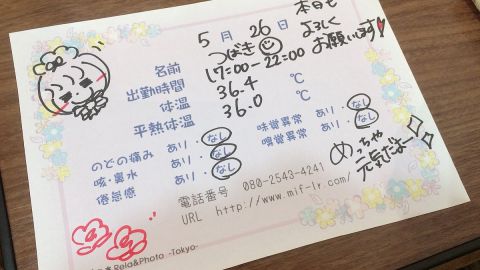 5月26日
本日も
よろしく
お願いします
名前 つばき
出勤時間 17:00-22:00
体温 36.4 ℃
平熱体温 36.0 ℃
のどの痛み あり・なし
咳・鼻水 あり・なし
倦怠感 あり・なし
味覚異常 あり・なし
嗅覚異常 あり・なし
めっちゃ
元気だよー
電話番号 080-2543-4241
URL http://www.mif-lr.com/
Rela&Photo -Tokyo-